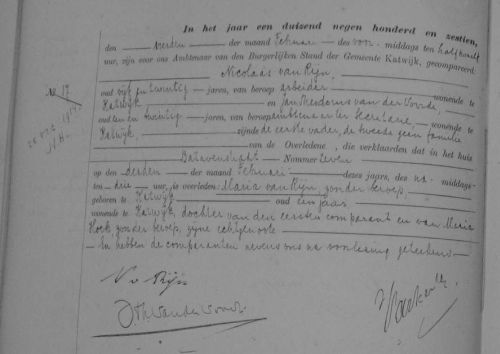 In het jaar een duizend negen honderd en zestien,
den vierden der maand Februari des voormiddags ten half
uur, zijn voor ons Ambtenaar van den Burgerlijken Stand der Gemeente Katwijk, gecompareerd:
Nicolaas van Rijn,
oud vijf en twintig jaren, van beroep arbeider wonende te
Katwijk en Jan Theodorus van der Voorde,
oud en twintig jaren, van beroep ambtenaar ter Secretarie wonende te
Katwijk, zijnde de eerste vader, de tweede geen familie
van de Overledene, die verklaarden dat in het huis
Nommer zeven
op den derden der maand Februari dezes jaars, des na middags
ten drie uur, is overleden: Maria van Rijn, zonder beroep
geboren te Katwijk oud een jaar
wonende te Katwijk, dochter van den eersten comparant en van Maria
Hoek, zonder beroep, zijne echtgenoote
En hebben de comparanten nevens ons na voorlezing geteekend
N v Rijn
JTh van der Voorde
No 17